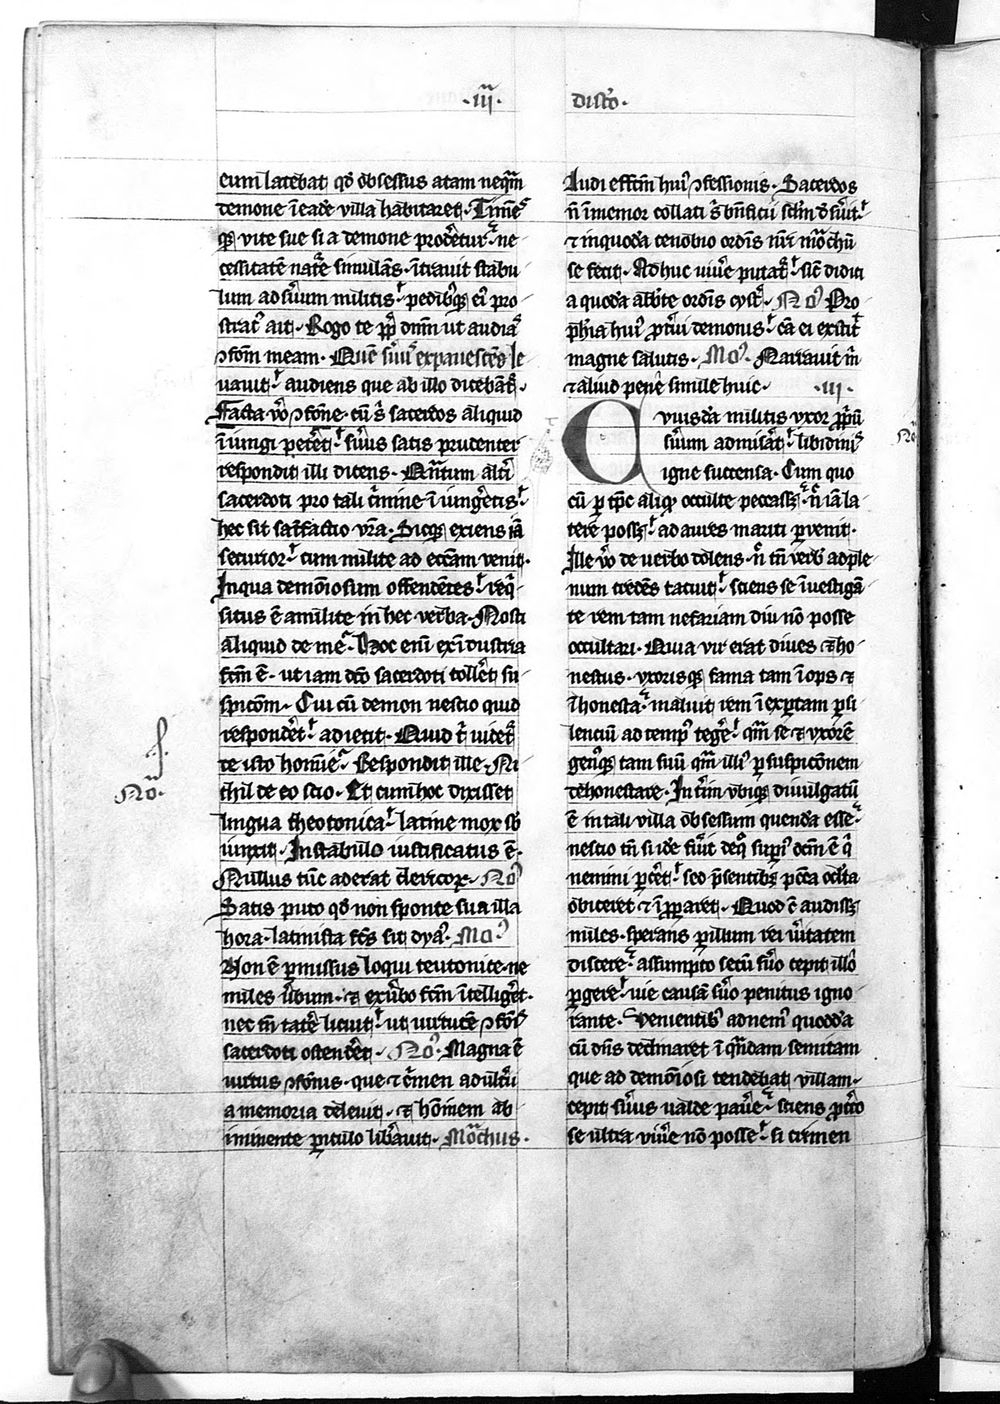 ·iij̃· disto̾·
eum latebat qd̾ obsessus a tam neq̃m
demone ĩ eade villa habitaret. Timẽs
q̨ vite sue si a demone prod̾etur· ne
cessitatẽ nat̾e simulãs· ĩtrauit stabu
lum ad s̾uum militis· pedibq̨ ei᾽ pro
strat᾽ ait. Rogo te ꝓpt̾ dñm ut audia᷒
ↄfõm meam. Quẽ su᾽ expauescẽs le
uauit· audiens que ab illo dicebãt᷑.
Facta v̾o ↄfõne· cũ s̾ sacerdos aliquid
ĩiungi pet̾et· s̾uus satis prudenter
respondit illi dicens. Qñtum alt̾i
sacerdoti pro tali c̾mine ĩiung̾etis·
hec sit satĩfactio vr̃a. Sicq̨ exiens iã
securior· cum milite ad eccãm venit.
Inqua demõiosum offendẽtes· req̾
situs ẽ a milite in hec verba. Nosti
aliquid de me. Hoc eni᷒ ex ĩdustria
fc̃m ẽ· ut iam dc̃o sacerdoti toll̾et su
spicõm. Cui cũ demon nescio quid
respond̾et· adiecit. Quid t̾ uidet᷑
de isto homĩe. Respondit ille. Ni
chil de eo scio. Et cum hoc dixisset
lingua theotonica· latine mox sb
iunxit. In stabulo iustificatus ẽ.
Nullus tũc aderat clericoꝝ. No᾽
Satis puto qd̾ non sponte sua illa
hora· latinista fc̃s sit dya᾽. Mo᾽
Non ẽ ꝑmissus loqui teutonice· ne
miles v̾bum· ⁊ ex v̾bo fc̃m ĩtellig̾et.
nec tñ tac̾e licuit· ut uirtutẽ ↄfõis
sacerdoti ostend̾et. No᾽. Magna ẽ
uirtus ↄfõnis· que ⁊ c̾men adult̾ii
a memoria deleuit· ⁊ hom̃inem ab
iminente ꝑiculo lib̾auit. Mo̾chus.
No̾.
Audi effc̃m hui᾽ ↄfessionis. Sacerdos
ñ ĩmemor collati s̾ bñficii sc̃lm d̾s̾uit·
⁊ in quoda cenobio ordĩs nr̃i mo̾chũ
se fecit. Adhuc viu̾e putat᷑· sic̃ didici
a quoda abb̾te ordĩs cyst̾. No᾽ Pro
ph̾ia hui᾽ ꝓt̾ui demonis· cã ei exstit̾
magne salutis. Mo᾽. Narrauit m̃
⁊ aliud pene simile huic. ·iij·
Cuiusda militis vxor ꝓpriũ
s̾uum admisãt· libidinis
igne succensa. Cum quo
cũ ꝑ tp̃e aliq᾽ occulte peccass᷒· ñ iã la
tere poss᷒· ad aures mariti ꝑuenit.
Ille v̾o de uerbo dolens· ñ tñ verb᾽ ad ple
num credẽs tacuit· sciens se ĩuestigã
te rem tam nefariam diu nõ posse
occultari. Quia vir erat diues ⁊ ho
nestus· vxorisq̨ fama tam ĩops ⁊
ĩhonesta· maluit rem ĩexꝑtam ꝑ si
lenciũ ad temp᾽ teg̾e· qm̃ se ⁊ vxorẽ
gen᾽q̨ tam suũ qm̃ illi᾽ ꝑ suspicõnem
dehonestare. Int̾im vbiq̨ diuulgatũ
ẽ in tali villa obsessum quenda esse·
nescio tñ si ide fu̾it de q᾽ supi᾽ dc̃m ẽ q̾
nemini ꝑc̾et· sed p̃sentib᷒ pc̃ca oc̾lta
obiceret ⁊ ĩꝓparet. Quod ẽ audiss᷒
miles· sperans ꝑ illum rei v̾itatem
discere· assumpto secũ s̾uo cepit illo
ꝑgere· vie causã s̾uo penitus igno
rante. Venientib᾽ ad nem᾽ quodda
cũ dñs declinaret ĩ q̾mdam semitam
que ad demõiosi tendebat villam.
cepit s̾uus ualde pau̾e· sciens ꝓc̾to
se ultra viu̾e nõ posse· si crimen